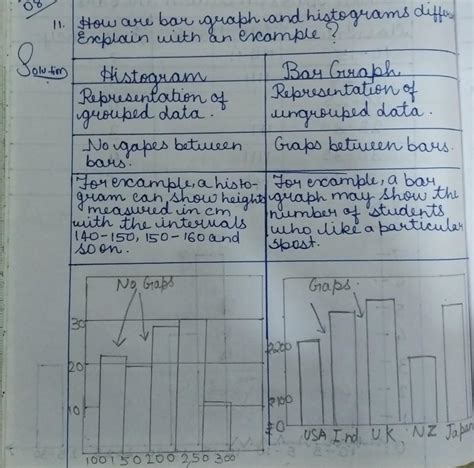 08
11. How are bar graph and histograms differ
Explain with an example ?
Solution
Histogram
Representation of
grouped data.
No gapes between
bars.
For example, a histo-
gram can show heights
measured in cm
with the intervals
140-150, 150-160 and
so on.
Bar Graph
Representation of
ungrouped data.
Gaps between bars.
For example, a bar
graph may show the
number of students
who like a particular
spost.
No Gaps
30
20
10
100 150 200 250 300
Gaps
200
100
0
USA Ind U.K NZ Japan